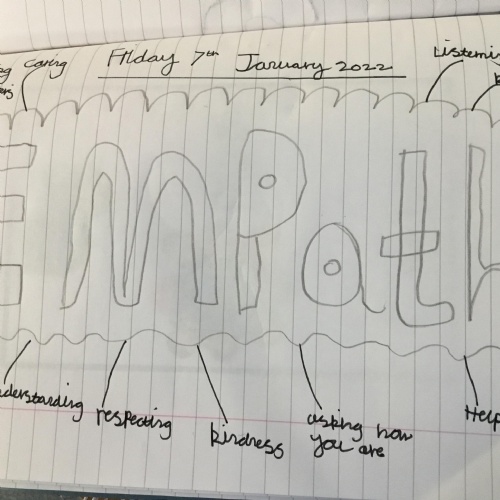 caring
Friday 7th January 2022
Listenin
EMPath
nderstanding
respecting
kindness
asking how
you are
Help